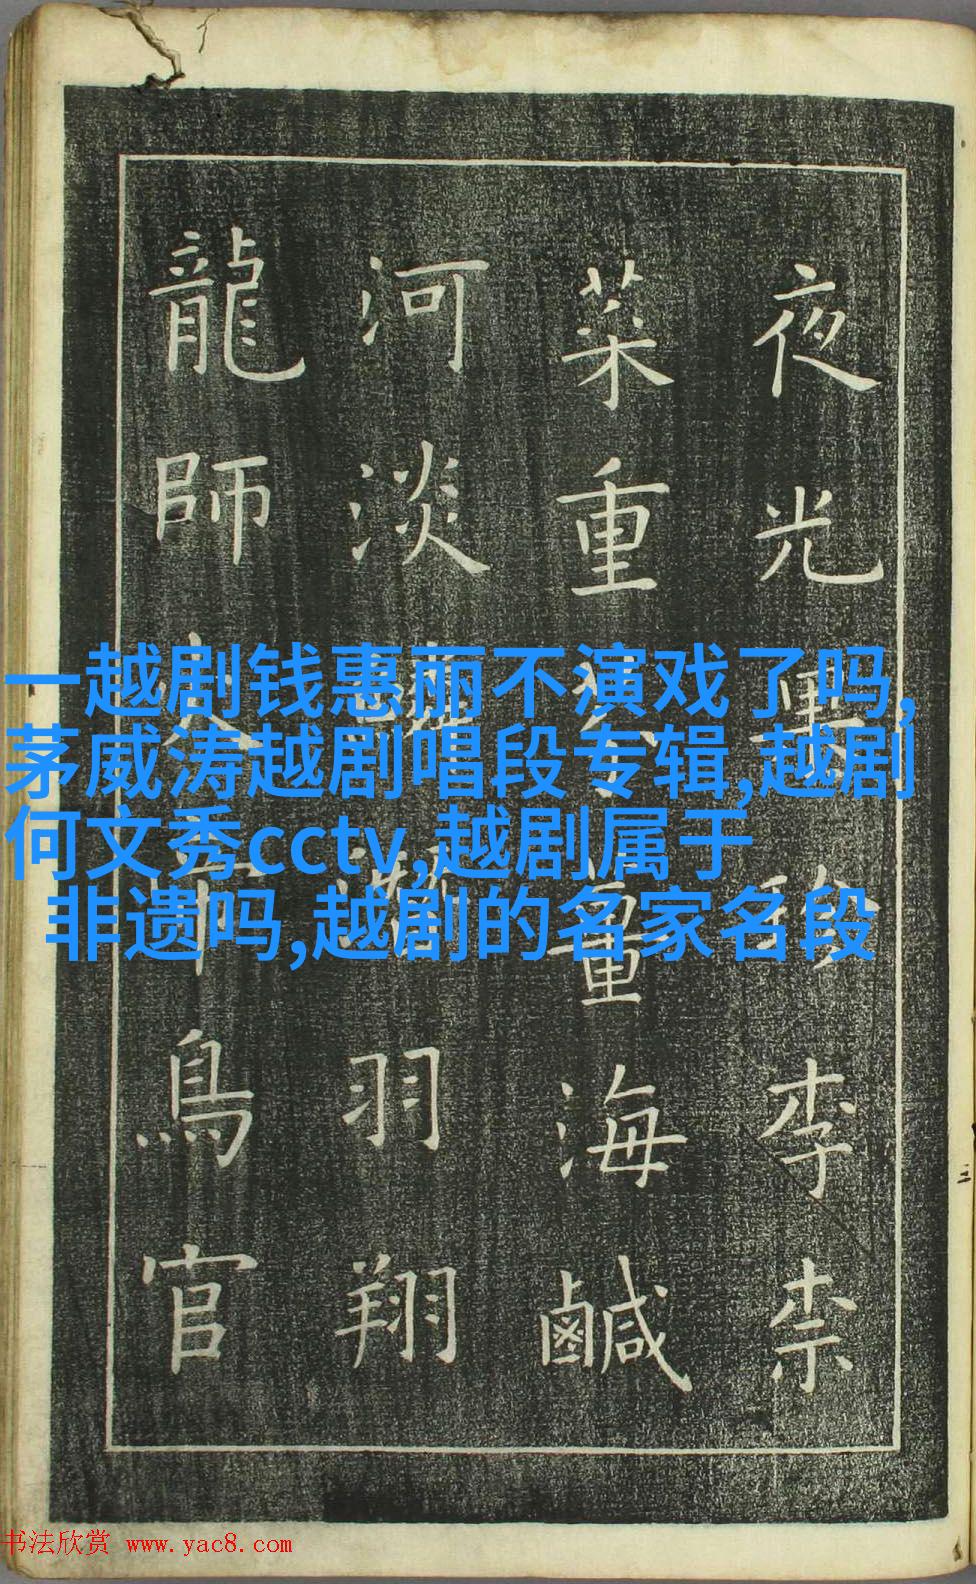 夜光果珍李柰
菜重海鹹
河淡羽翔
龍師鳥官
一越剧钱惠丽不演戏了吗,
茅威涛越剧唱段专辑,越剧
何文秀cctv,越剧属于
非遗吗,越剧的名家名段
书法欣赏 www.yac8.com